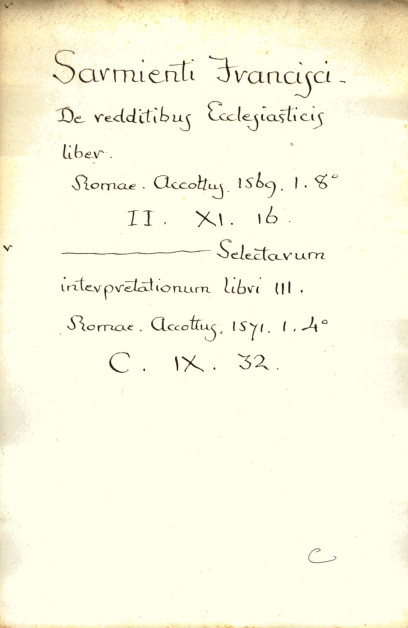 Sarmienti Francisci -
De redditibus Ecclesiasticis
liber.
Romae. Accoltus. 1569. 1. 8°
II. XI. 16.
——— Selectarum
interpretationum libri III.
Romae. Accoltus. 1571. 1. 4°
C. IX. 32.
C